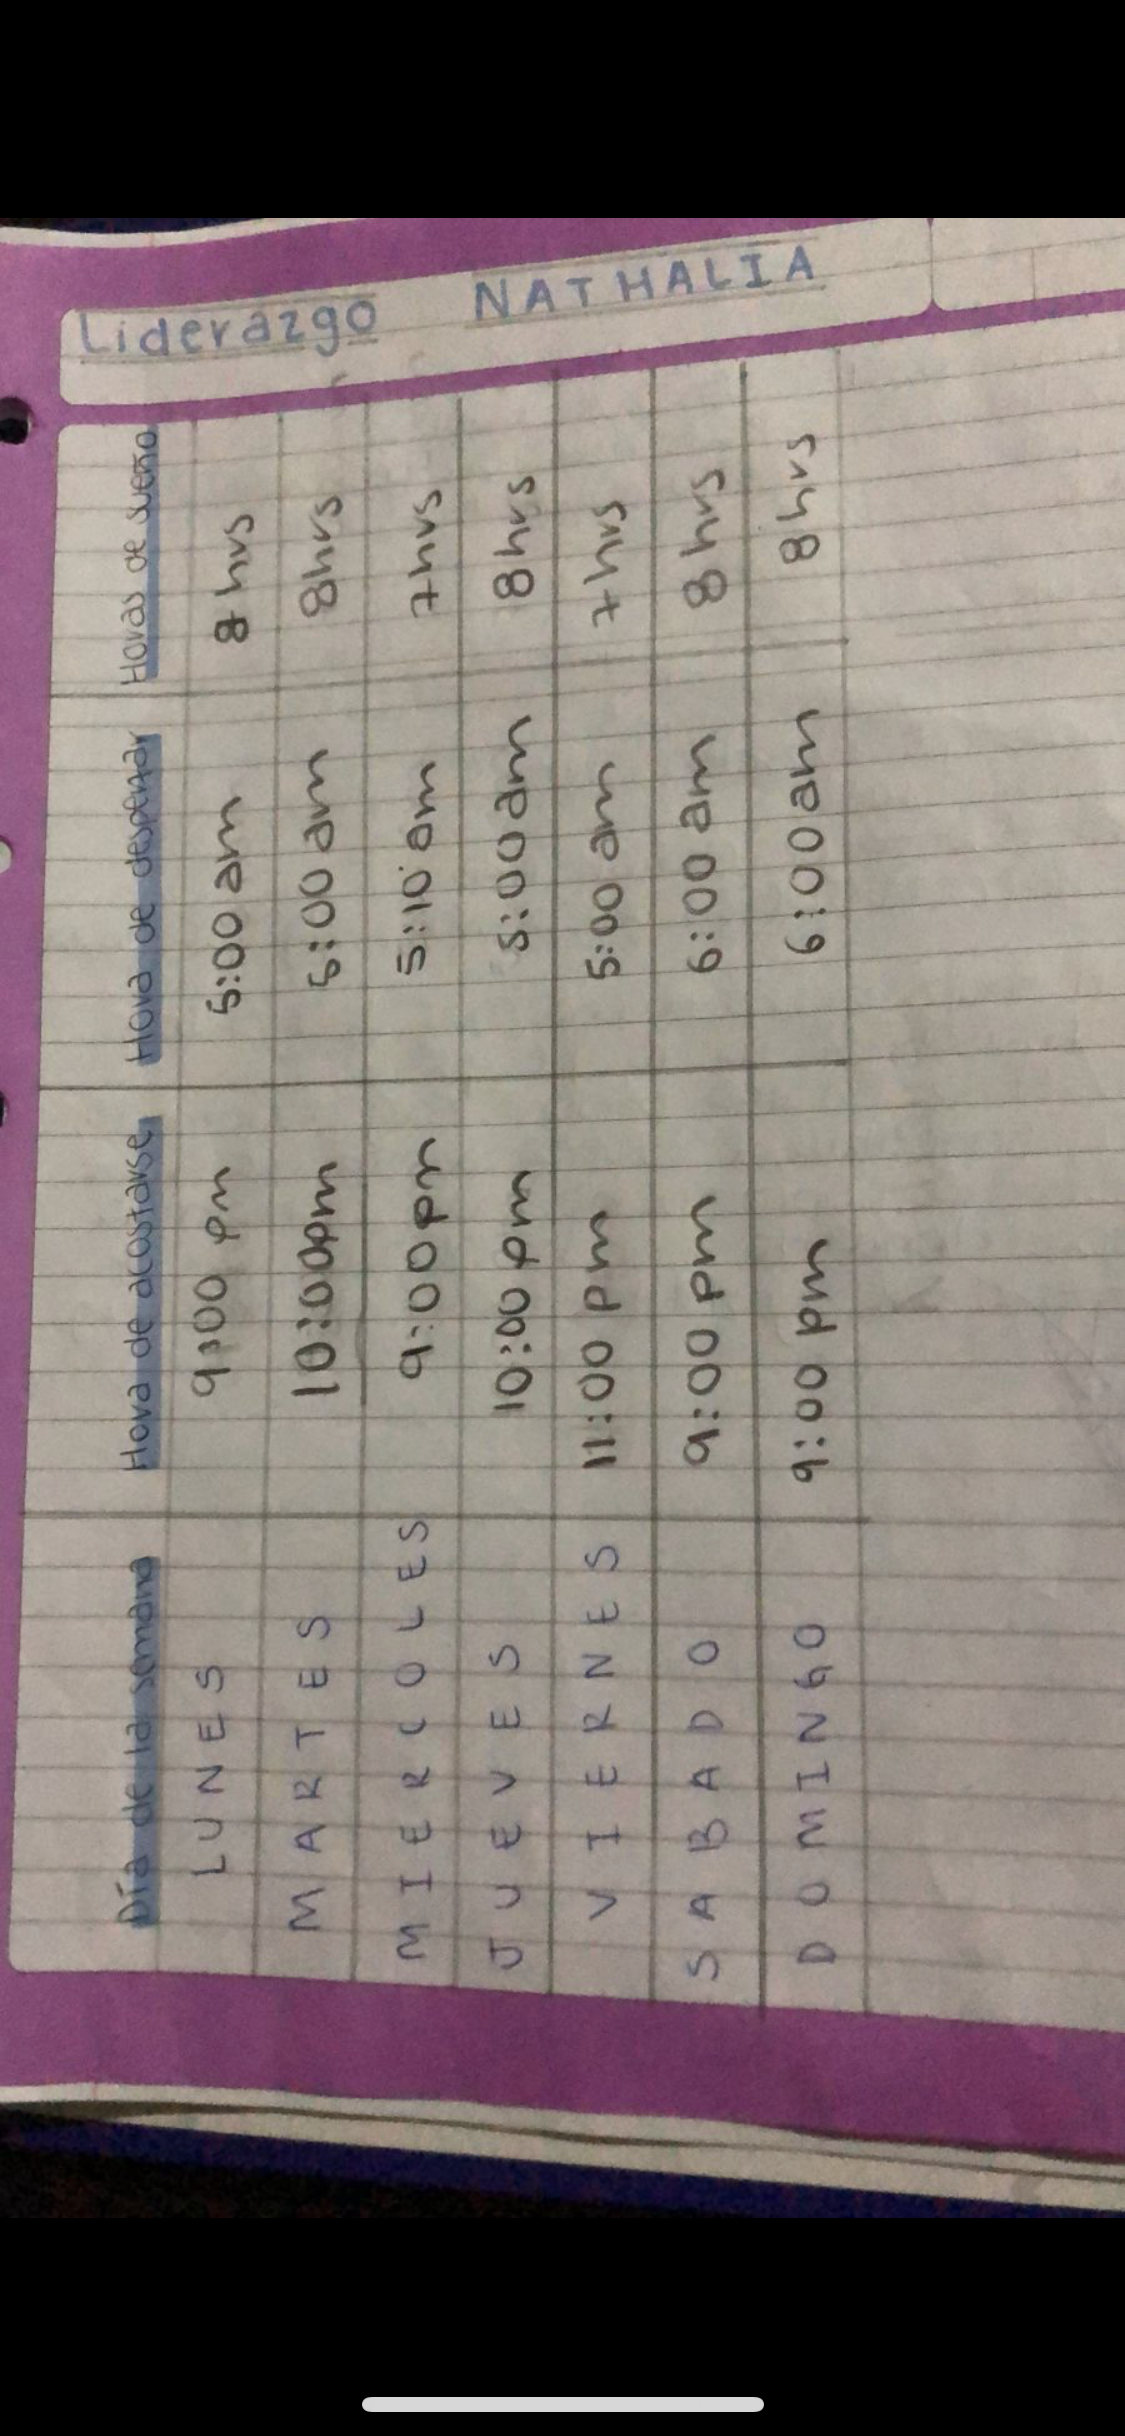 Liderazgo NATHALIA
Día de la semana Hora de acostarse Hora de despertar Horas de sueño
LUNES 9:00 pm 5:00 am 8 hrs
MARTES 10:00pm 6:00 am 8hrs
MIERCOLES 9:00pm 5:10 am 7hrs
JUEVES 10:00 pm 5:00 am 8hrs
VIERNES 11:00 pm 5:00 am 7 hrs
SABADO 9:00 pm 6:00 am 8 hrs
DOMINGO 9:00 pm 6:00am 8 hrs